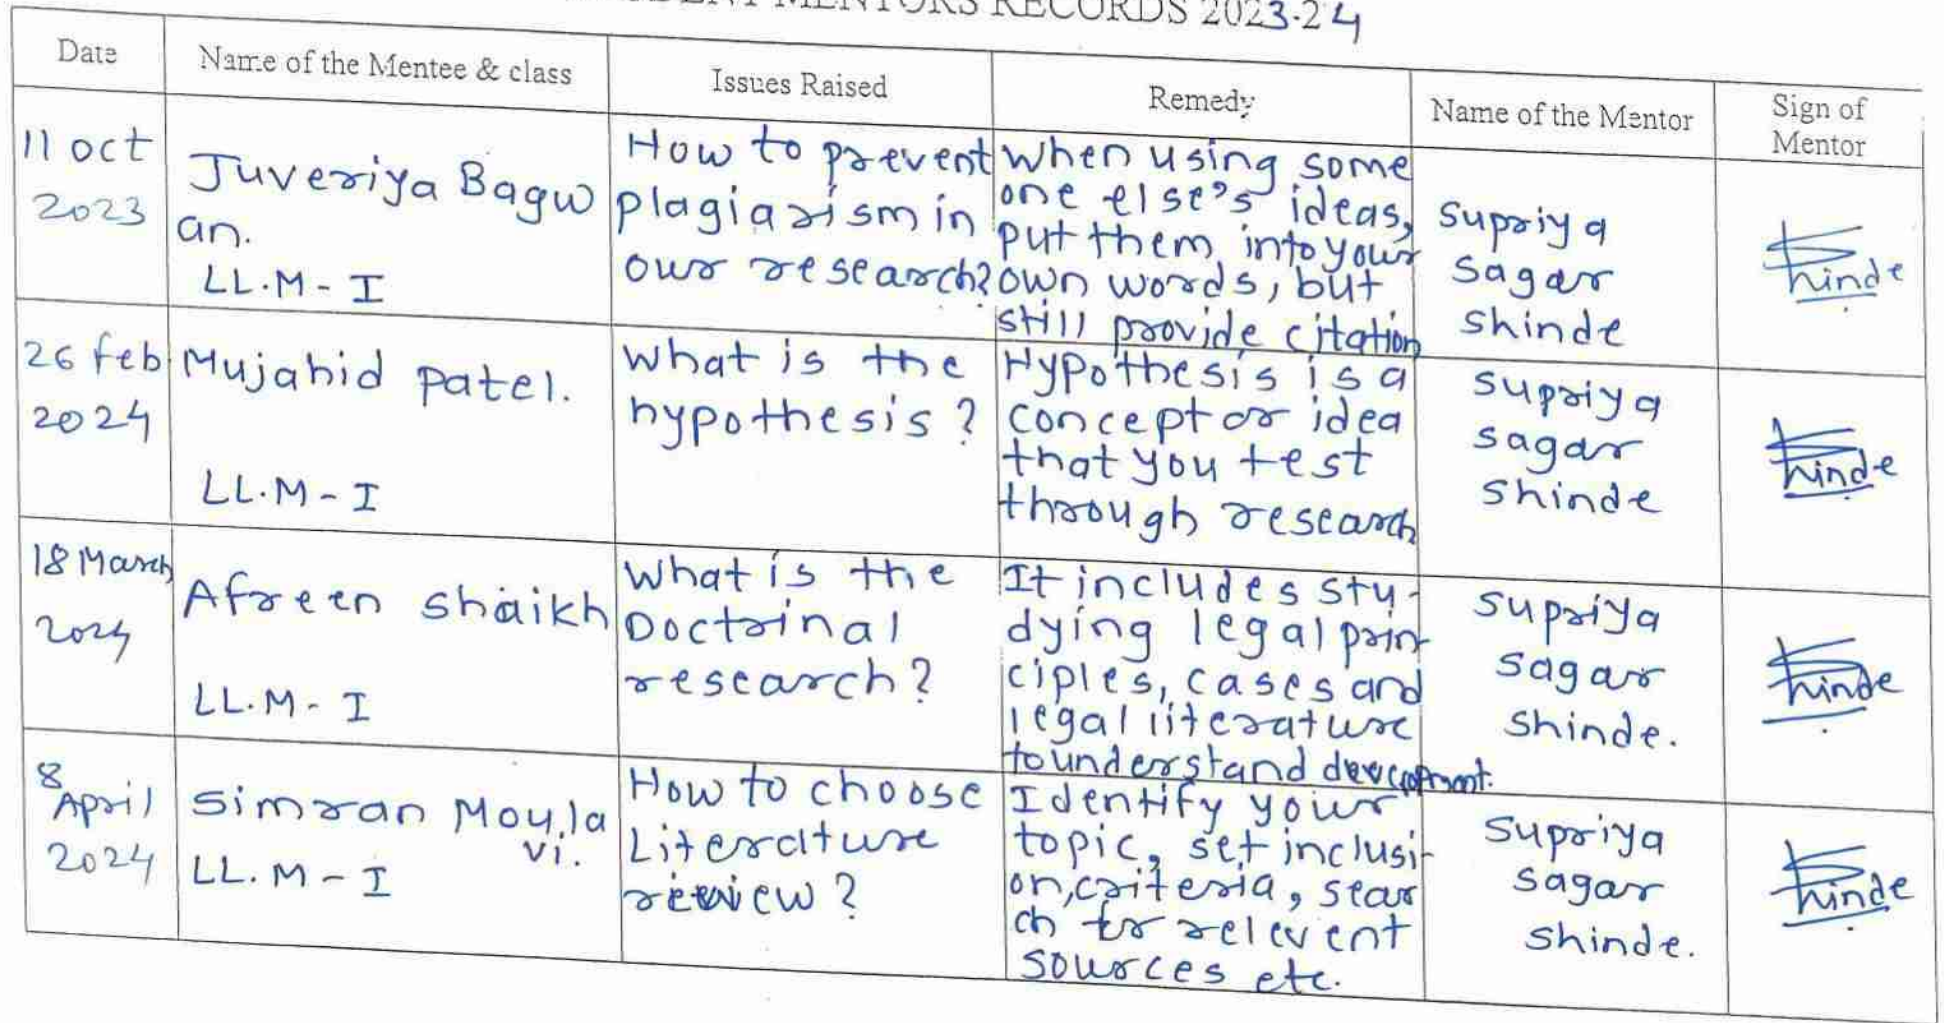 MENTORS RECORDS 2023-24
Date
Name of the Mentee & class
Issues Raised
Remedy
Name of the Mentor
Sign of
Mentor
11 oct
2023
Juveriya Bagw
an.
LL.M - I
How to prevent
plagiarism in
our research?
when using some
one else's ideas,
put them into your
own words, but
still provide citation
Supriya
sagar
shinde
Shinde
26 feb
2024
Mujahid patel.
LL.M - I
what is the
hypothesis?
Hypothesis is a
concept or idea
that you test
through research
Supriya
sagar
shinde
Shinde
18 March
2024
Afreen shaikh
LL.M - I
what is the
Doctrinal
research?
It includes stu-
dying legal prin-
ciples, cases and
legal literature
to understand development.
Supriya
sagar
shinde.
Shinde
8
April
2024
Simran Moula
vi.
LL.M - I
How to choose
Literature
review?
Identify your
topic, set inclusi-
on, criteria, sear
ch for relevent
sources etc.
Supriya
sagar
shinde.
Shinde